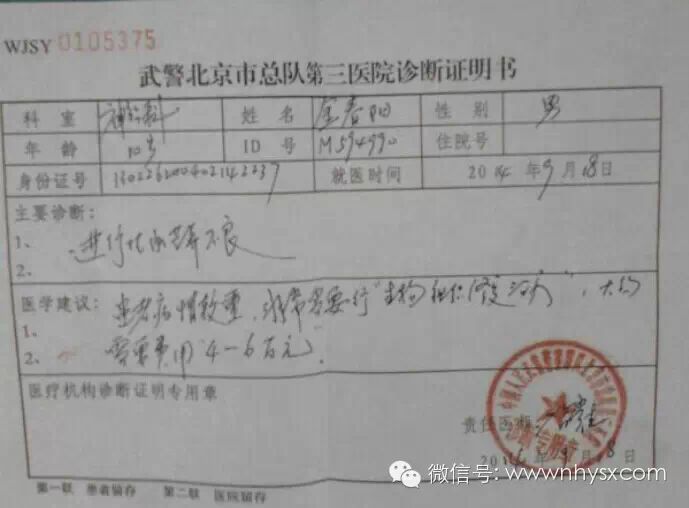 WJSY 0105375
武警北京市总队第三医院诊断证明书
科室 神经科 姓名 春阳 性别 男
年龄 10岁 ID号 M594990 住院号
身份证号 就医时间 2014年9月18日
主要诊断:
1、 进行性肌营养不良
2、
医学建议: 患者病情较重,非常需要行“生物组织修复治疗”,大约
1、
2、 需要费用“4-6万元”。
医疗机构诊断证明专用章
责任医师:
2014年9月18日
第一联 患者留存 第二联 医院留存
微信号: www.nhysx.com